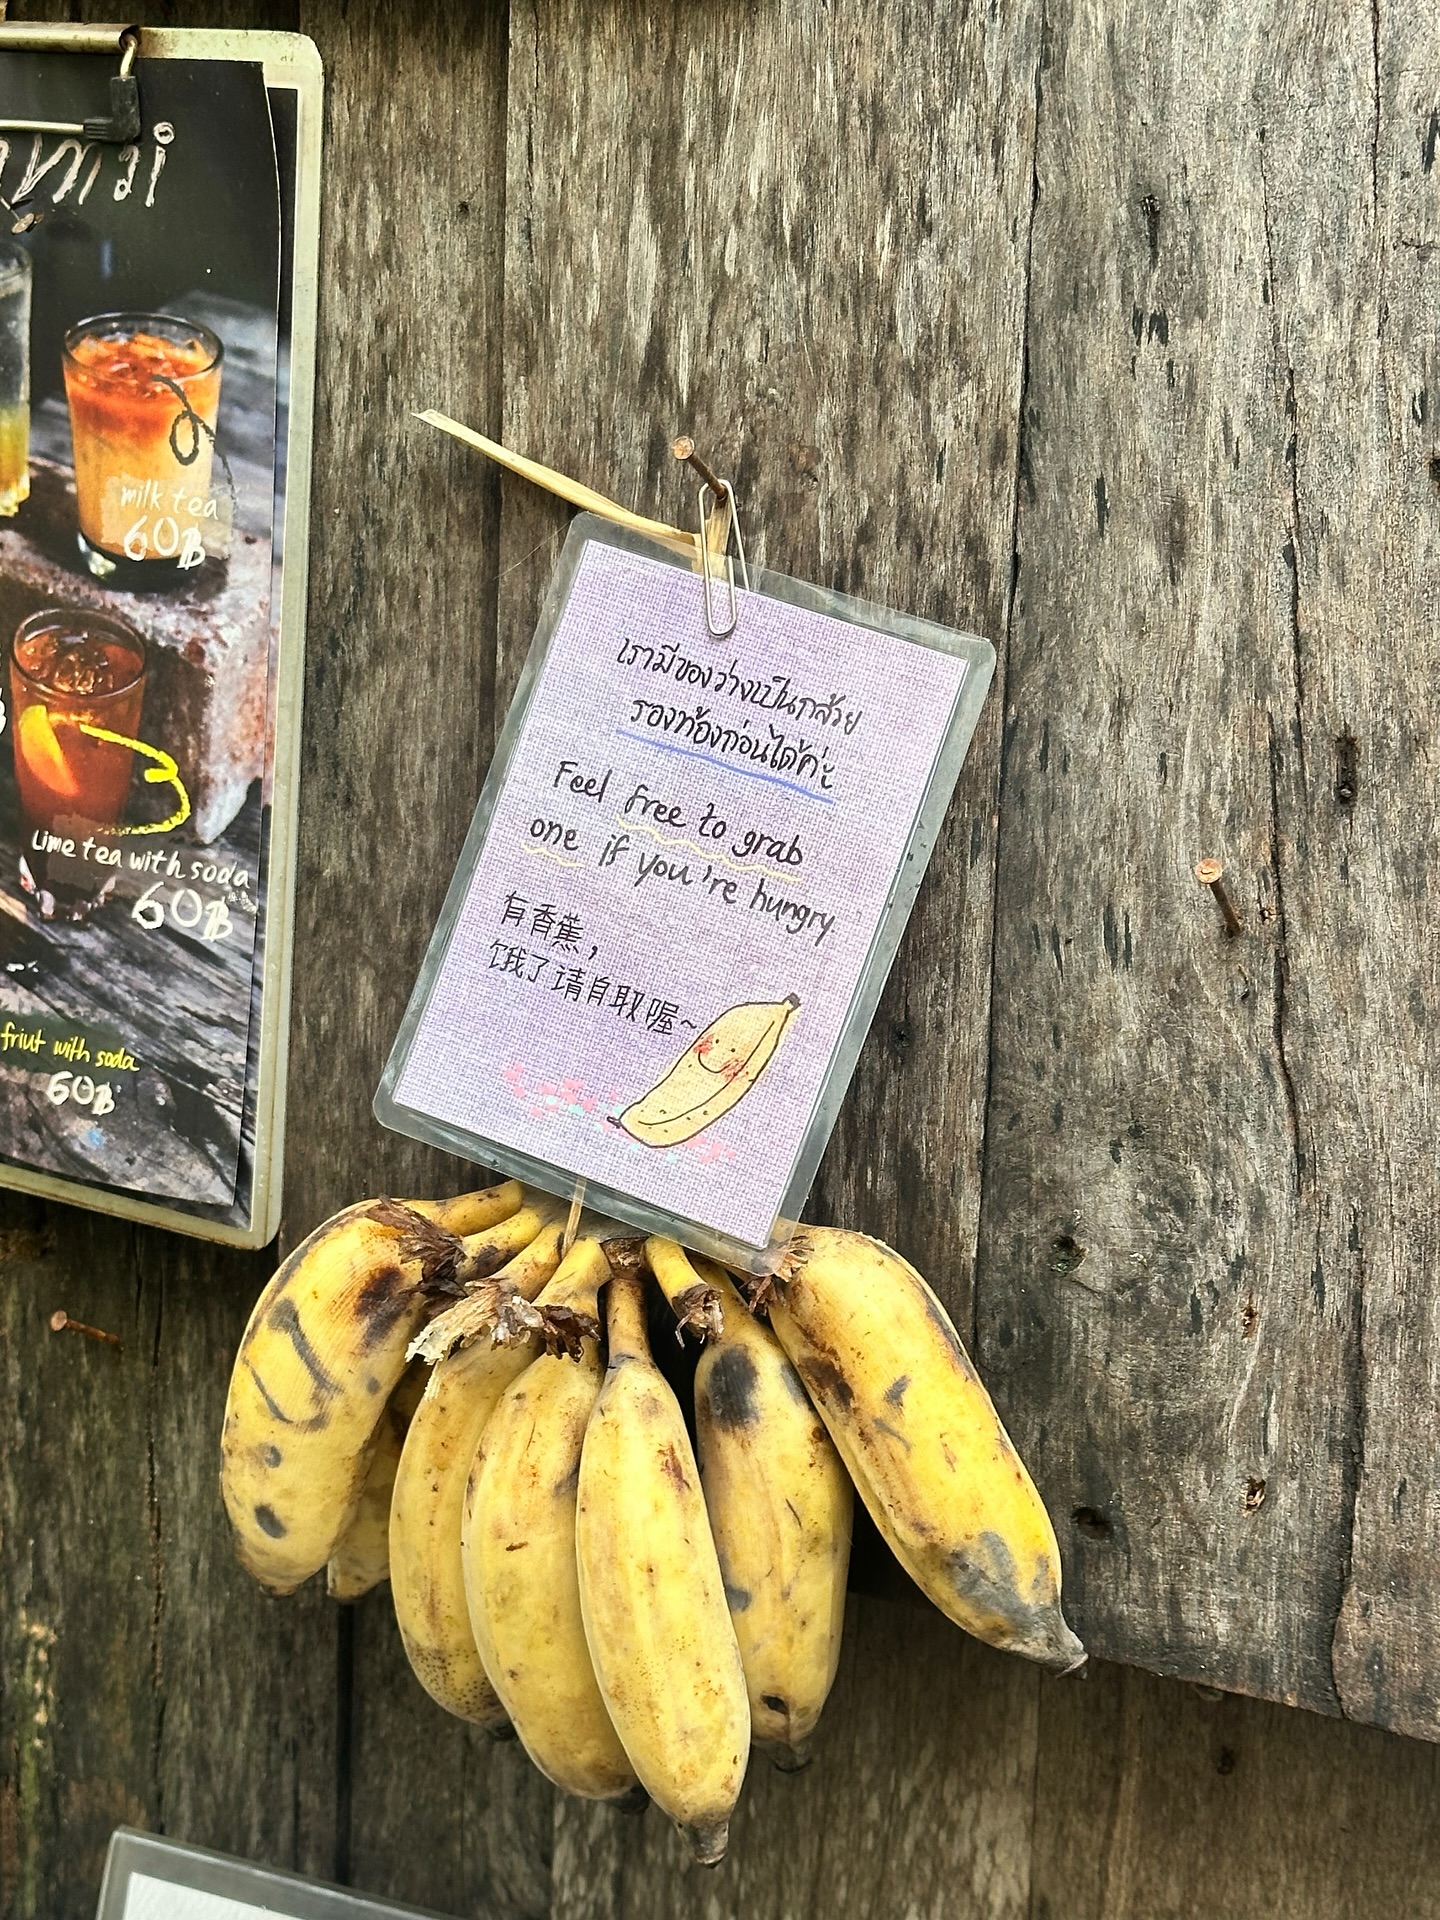 milk tea
60฿
Lime tea with soda
60฿
friut with soda
60฿
เรามีของว่างเป็นกล้วย
รองท้องก่อนได้ค่ะ
Feel free to grab
one if you're hungry
有香蕉，
饿了请自取喔~